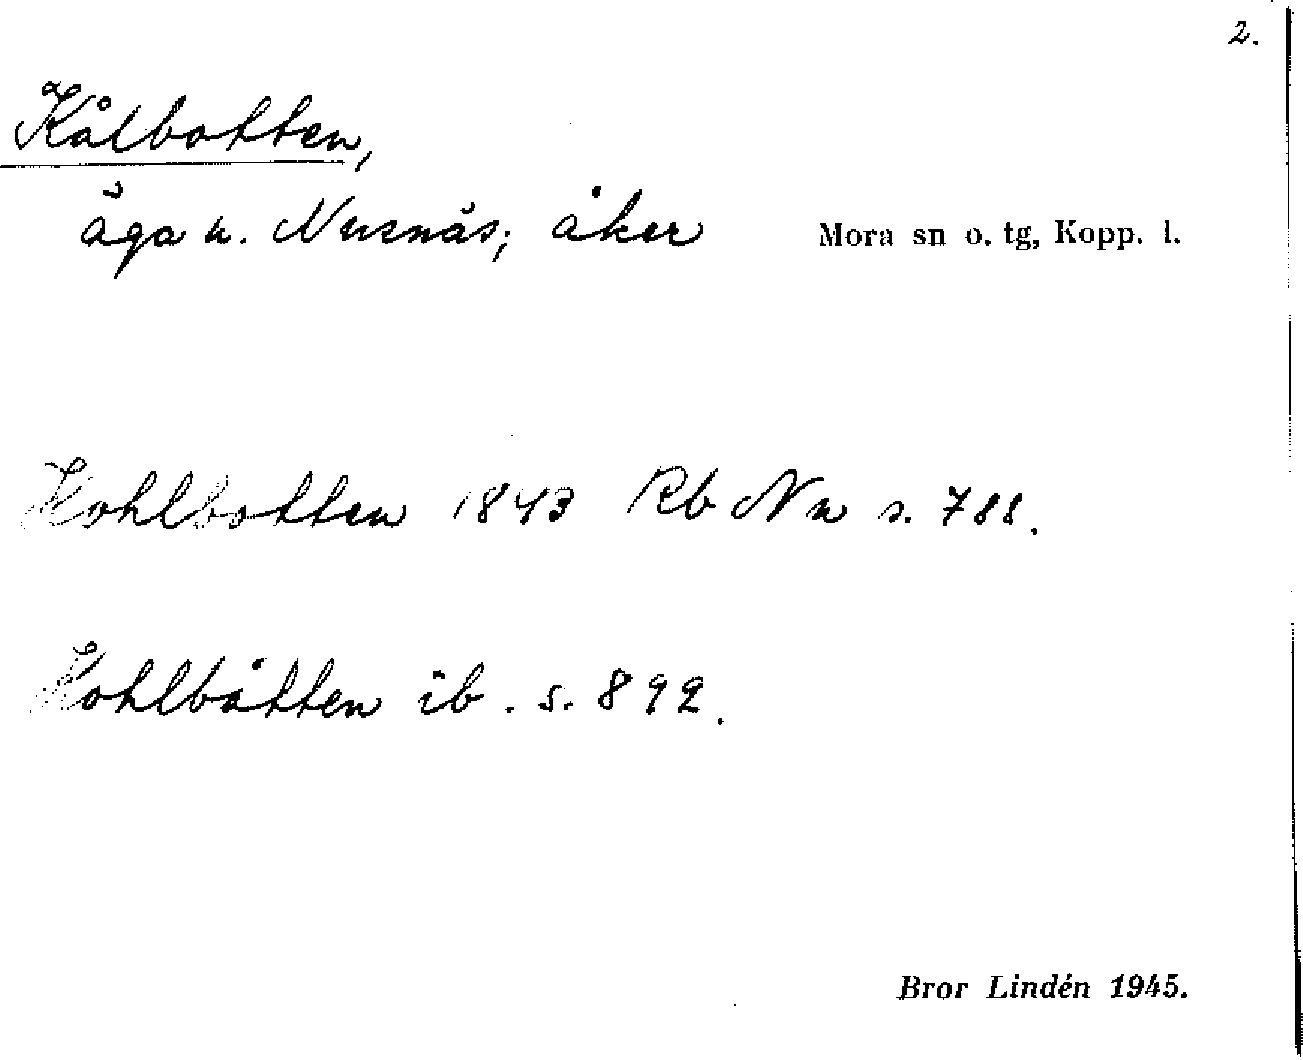 2.
Kålbotten,
äga u. Nusnäs; åker
Mora sn o. tg, Kopp. l.
Kohlbotten 1843 Rb Nn s. 788.
Kohlbåtten ib. s. 892.
Bror Lindén 1945.